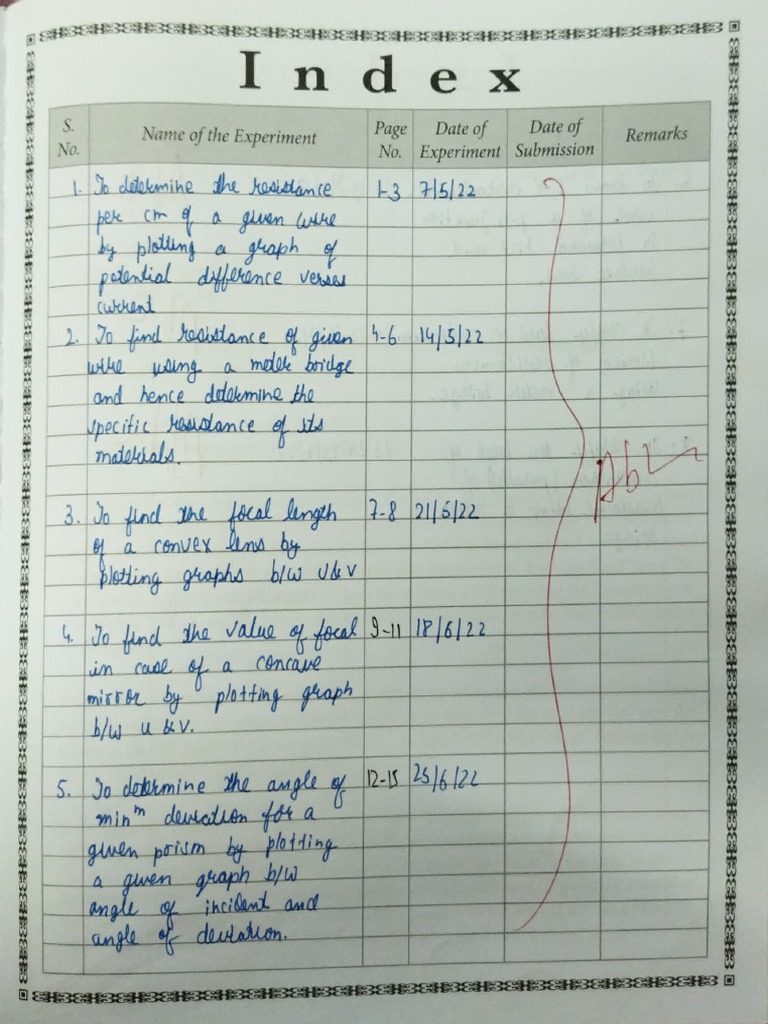 Index
S. No. Name of the Experiment Page No. Date of Experiment Date of Submission Remarks
1. To determine the resistance 1-3 7/5/22
per cm of a given wire
by plotting a graph of
potential difference verses
current
2. To find resistance of given 4-6 14/5/22
wire using a meter bridge
and hence determine the
specific resistance of its
materials.
3. To find the focal length 7-8 21/5/22
of a convex lens by
plotting graphs b/w u & v
4. To find the value of focal 9-11 18/6/22
in case of a concave
mirror by plotting graph
b/w u & v.
5. To determine the angle of 12-15 25/6/22
minᵐ deviation for a
given prism by plotting
a given graph b/w
angle of incident and
angle of deviation.